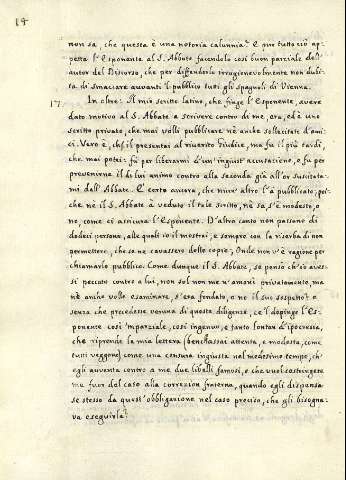 18
non sa, che questa è una notoria calunnia? E pur tutto ciò ap-
petta l'Esponente al S. Abbate facendolo così buon parziale dell'
autor del Discorso, che per diffenderlo irragionevolmente non dubi-
ta di smaccare avvanti 'l pubblico tutti gli Spagnoli di Vienna.
17. In oltre: Il mio scritto latino, che finge l'Esponente, avere
dato motivo al S. Abbate a scrivere contro di me, era, ed è uno
scritto privato, che mai volli pubblicare nè anche sollecitato d'ami-
ci. Vero è, ch'il presentai al riverito Giudice, ma fu il più tardi,
che mai potei: fù per liberarmi d'un'ingiust'accusazione, e fu per
prevenirne il di lui animo contro alla seconda già all'or suscitata-
mi dall'Abbate. E certo ancora, che niun'altro l'à pubblicato; poi-
che nè il S. Abbate à veduto il tale scritto, nè sa s'è modesto, o
no, come ci assicura l'Esponente. D'altro canto non passano di
dodeci persone, alle quali io il mostrai, e sempre con la riserba di non
permettere, che se ne cavassero delle copie; Onde non v'è ragione per
chiamarlo pubblico. Come dunque il S. Abbate, se pensò ch'io aves-
si peccato contro a lui, non sol non me n'amonì privatamente, ma
nè anche volle esaminare, s'era fondato, o no il suo sospetto? e
senza che precedesse veruna di queste diligenze, ce l'dipinge l'Es-
ponente così 'mparziale, così ingenuo, e tanto lontan d'ipocresia,
che riprende la mia lettera (benchassai attenta, e modesta, come
tutti veggono) come una censura ingiusta nel medesimo tempo, ch'
egli avventa contro a me due libelli famosi, e che vuol costringere
me fuor dal caso alla correzion fraterna, quando egli dispensa
se stesso da quest'obbligazione nel caso preciso, che gli bisogna-
va eseguirla?